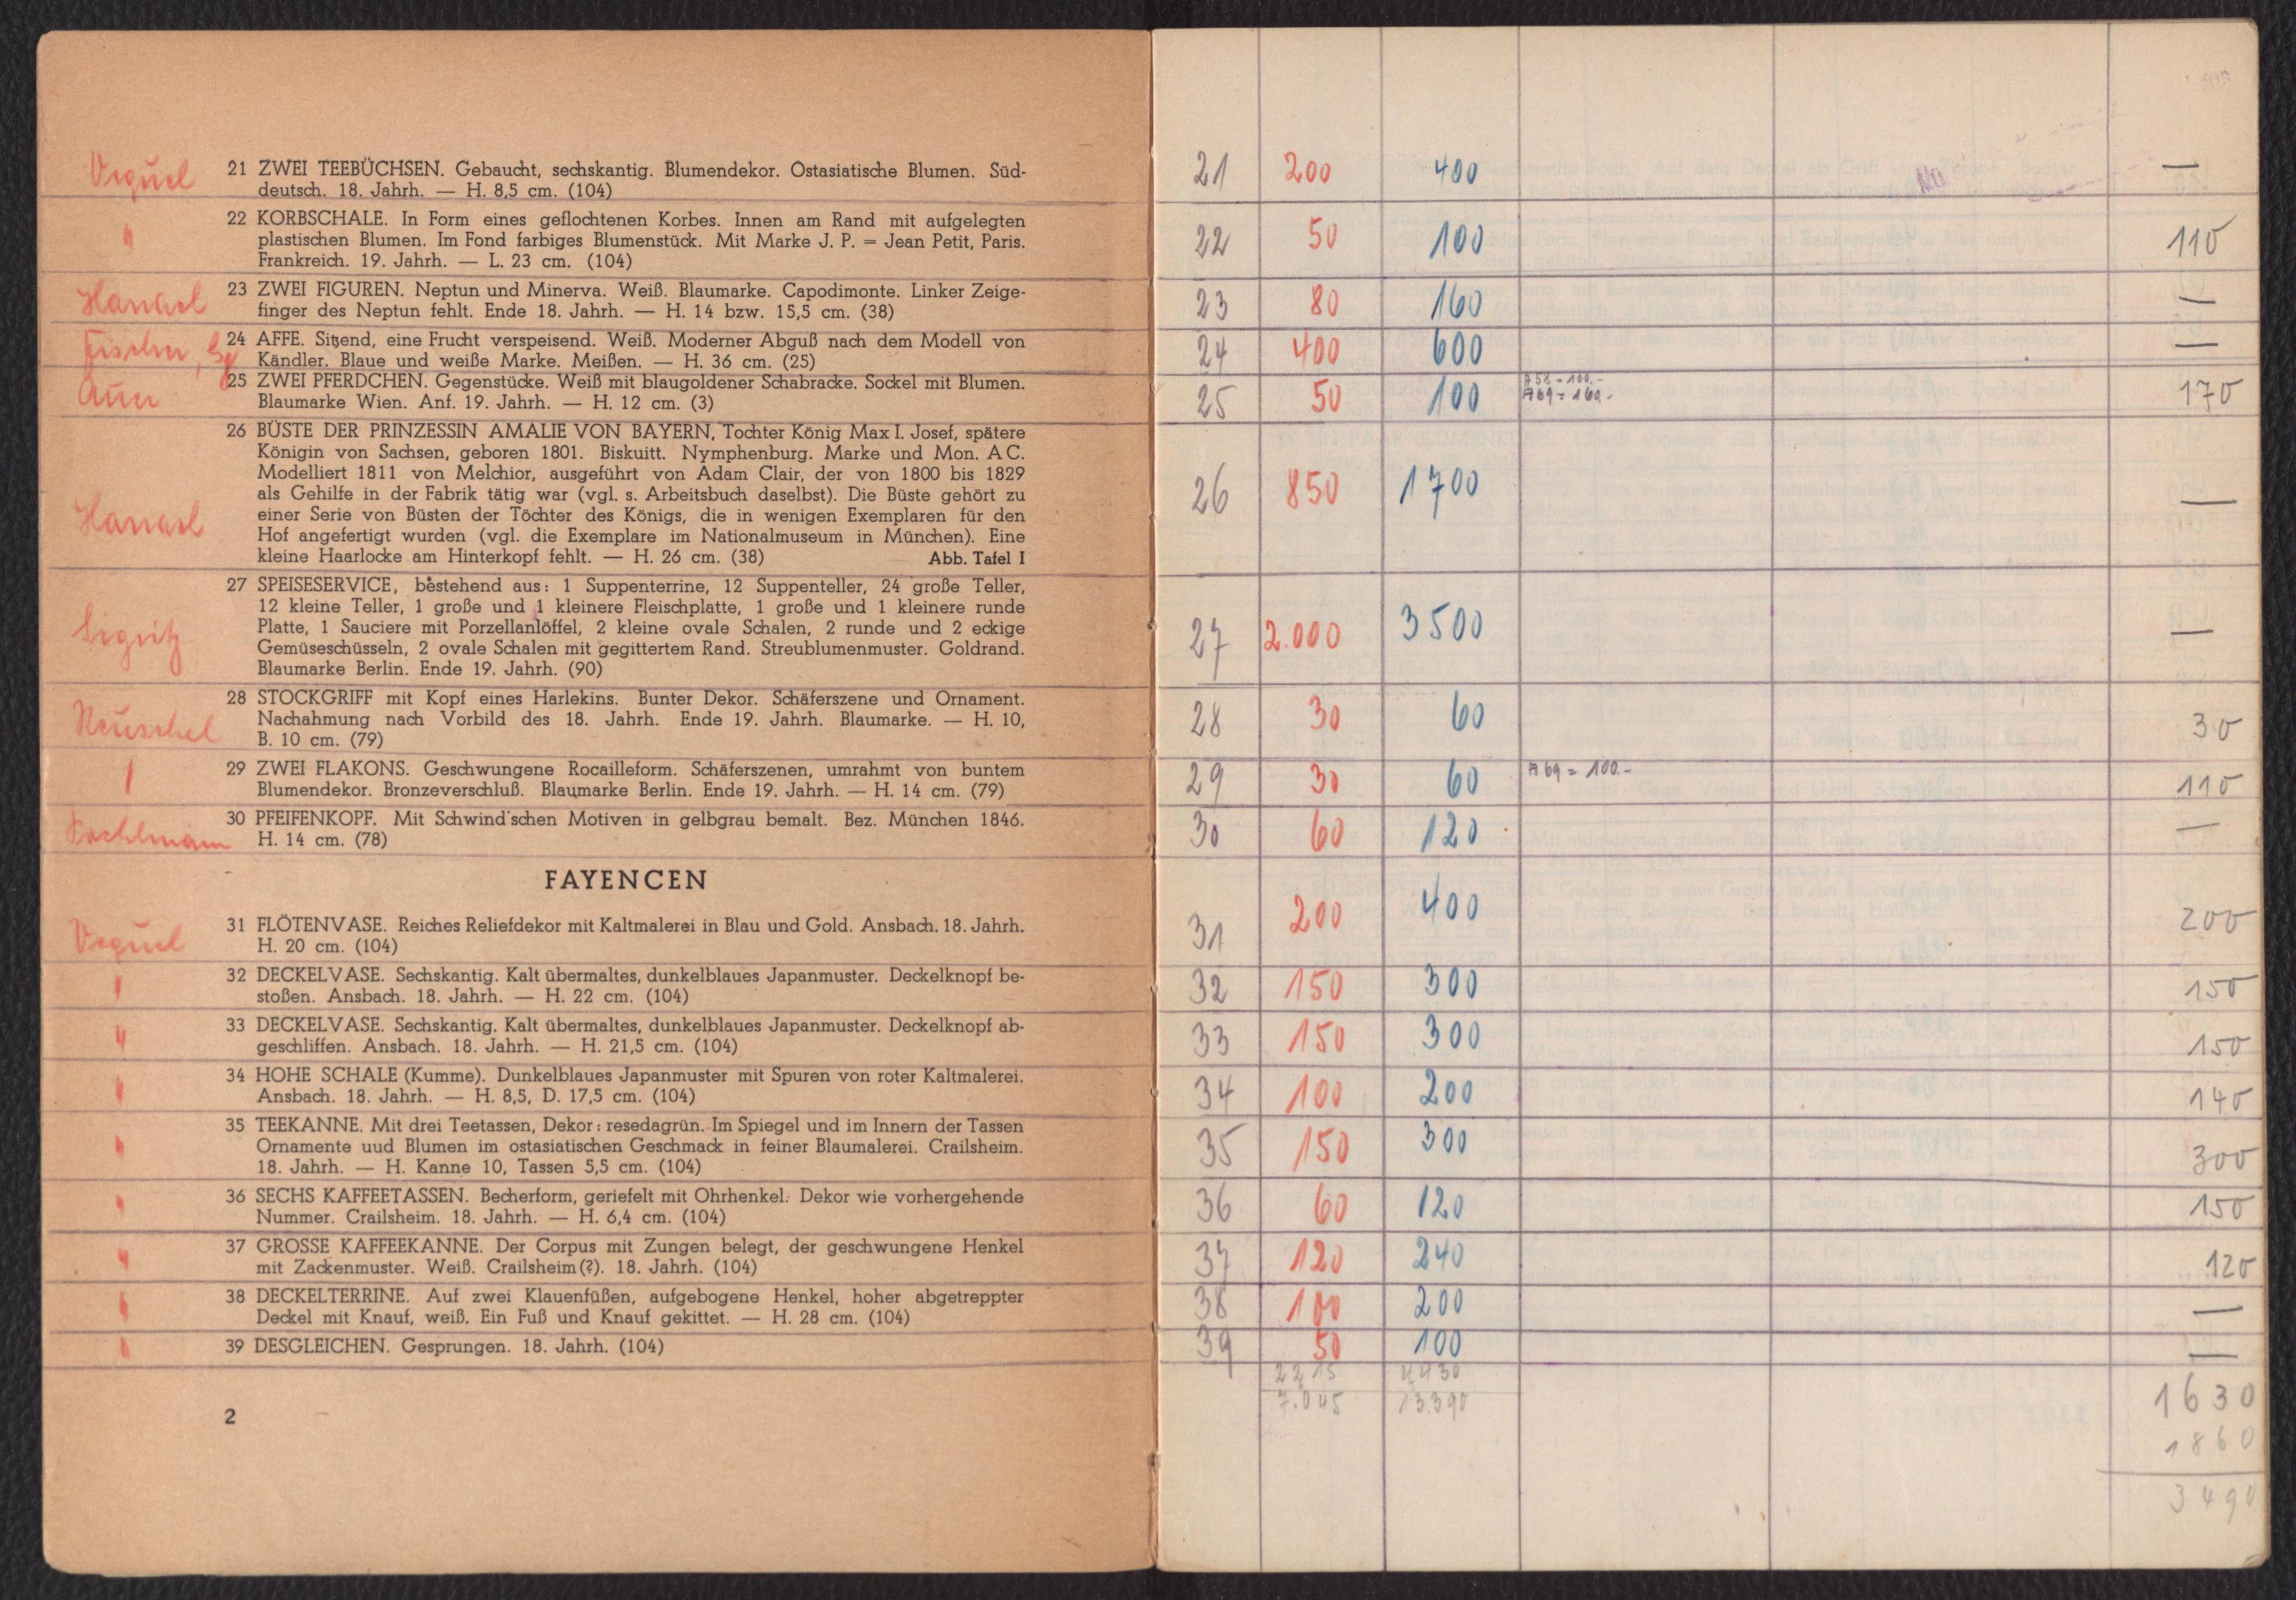 Vequel
21 ZWEI TEEBÜCHSEN. Gebaucht, sechskantig. Blumendekor. Ostasiatische Blumen. Süd-
deutsch. 18. Jahrh. — H. 8,5 cm. (104)
"
22 KORBSCHALE. In Form eines geflochtenen Korbes. Innen am Rand mit aufgelegten
plastischen Blumen. Im Fond farbiges Blumenstück. Mit Marke J. P. = Jean Petit, Paris.
Frankreich. 19. Jahrh. — L. 23 cm. (104)
23 ZWEI FIGUREN. Neptun und Minerva. Weiß. Blaumarke. Capodimonte. Linker Zeige-
finger des Neptun fehlt. Ende 18. Jahrh. — H. 14 bzw. 15,5 cm. (38)
Fischer,
24 AFFE. Sitzend, eine Frucht verspeisend. Weiß. Moderner Abguß nach dem Modell von
Kändler. Blaue und weiße Marke. Meißen. — H. 36 cm. (25)
Auer
25 ZWEI PFERDCHEN. Gegenstücke. Weiß mit blaugoldener Schabracke. Sockel mit Blumen.
Blaumarke Wien. Anf. 19. Jahrh. — H. 12 cm. (3)
26 BÜSTE DER PRINZESSIN AMALIE VON BAYERN, Tochter König Max I. Josef, spätere
Königin von Sachsen, geboren 1801. Biskuitt. Nymphenburg. Marke und Mon. A C.
Modelliert 1811 von Melchior, ausgeführt von Adam Clair, der von 1800 bis 1829
als Gehilfe in der Fabrik tätig war (vgl. s. Arbeitsbuch daselbst). Die Büste gehört zu
einer Serie von Büsten der Töchter des Königs, die in wenigen Exemplaren für den
Hof angefertigt wurden (vgl. die Exemplare im Nationalmuseum in München). Eine
kleine Haarlocke am Hinterkopf fehlt. — H. 26 cm. (38) Abb. Tafel I
27 SPEISESERVICE, bestehend aus: 1 Suppenterrine, 12 Suppenteller, 24 große Teller,
12 kleine Teller, 1 große und 1 kleinere Fleischplatte, 1 große und 1 kleinere runde
Platte, 1 Sauciere mit Porzellanlöffel, 2 kleine ovale Schalen, 2 runde und 2 eckige
Gemüseschüsseln, 2 ovale Schalen mit gegittertem Rand. Streublumenmuster. Goldrand.
Blaumarke Berlin. Ende 19. Jahrh. (90)
Neuschel
28 STOCKGRIFF mit Kopf eines Harlekins. Bunter Dekor. Schäferszene und Ornament.
Nachahmung nach Vorbild des 18. Jahrh. Ende 19. Jahrh. Blaumarke. — H. 10,
B. 10 cm. (79)
29 ZWEI FLAKONS. Geschwungene Rocailleform. Schäferszenen, umrahmt von buntem
Blumendekor. Bronzeverschluß. Blaumarke Berlin. Ende 19. Jahrh. — H. 14 cm. (79)
30 PFEIFENKOPF. Mit Schwind'schen Motiven in gelbgrau bemalt. Bez. München 1846.
H. 14 cm. (78)
FAYENCEN
Vequel
31 FLÖTENVASE. Reiches Reliefdekor mit Kaltmalerei in Blau und Gold. Ansbach. 18. Jahrh.
H. 20 cm. (104)
32 DECKELVASE. Sechskantig. Kalt übermaltes, dunkelblaues Japanmuster. Deckelknopf be-
stoßen. Ansbach. 18. Jahrh. — H. 22 cm. (104)
"
33 DECKELVASE. Sechskantig. Kalt übermaltes, dunkelblaues Japanmuster. Deckelknopf ab-
geschliffen. Ansbach. 18. Jahrh. — H. 21,5 cm. (104)
"
34 HOHE SCHALE (Kumme). Dunkelblaues Japanmuster mit Spuren von roter Kaltmalerei.
Ansbach. 18. Jahrh. — H. 8,5, D. 17,5 cm. (104)
"
35 TEEKANNE. Mit drei Teetassen, Dekor: resedagrün. Im Spiegel und im Innern der Tassen
Ornamente uud Blumen im ostasiatischen Geschmack in feiner Blaumalerei. Crailsheim.
18. Jahrh. — H. Kanne 10, Tassen 5,5 cm. (104)
"
36 SECHS KAFFEETASSEN. Becherform, geriefelt mit Ohrhenkel. Dekor wie vorhergehende
Nummer. Crailsheim. 18. Jahrh. — H. 6,4 cm. (104)
"
37 GROSSE KAFFEEKANNE. Der Corpus mit Zungen belegt, der geschwungene Henkel
mit Zackenmuster. Weiß. Crailsheim(?). 18. Jahrh. (104)
"
38 DECKELTERRINE. Auf zwei Klauenfüßen, aufgebogene Henkel, hoher abgetreppter
Deckel mit Knauf, weiß. Ein Fuß und Knauf gekittet. — H. 28 cm. (104)
"
39 DESGLEICHEN. Gesprungen. 18. Jahrh. (104)
2
21 200 400 —
22 50 100 110
23 80 160 —
24 400 600 —
25 50 100 A 58 = 100.- 170
A 69 = 160.-
26 850 1700 —
27 2.000 3500 —
28 30 60 30
29 30 60 A 69 = 100.- 110
30 60 120 —
31 200 400 200
32 150 300 150
33 150 300 150
34 100 200 140
35 150 300 300
36 60 120 150
37 120 240 120
38 100 200 —
39 50 100 —
2215 4430
7.045 13.390
1630
1860
3490